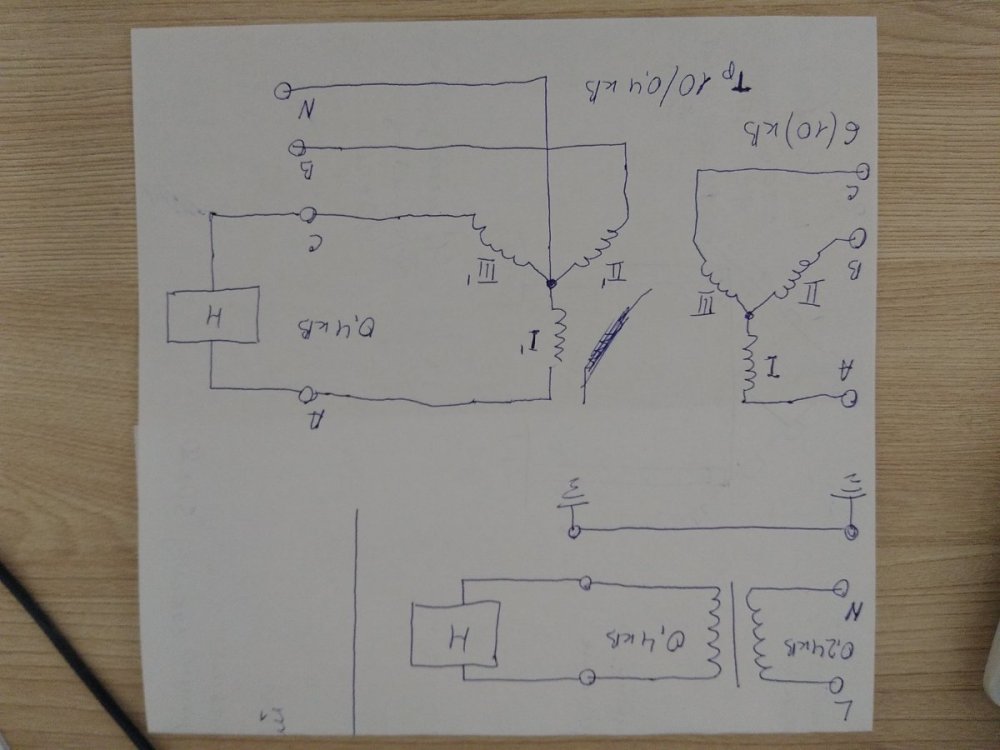 L
0,24кВ
N
0,4кВ
Н
A
I
B
II
C
III
6(10)кВ
I'
II'
III'
Тр 10/0,4кВ
A
0,4кВ
C
B
N
Н